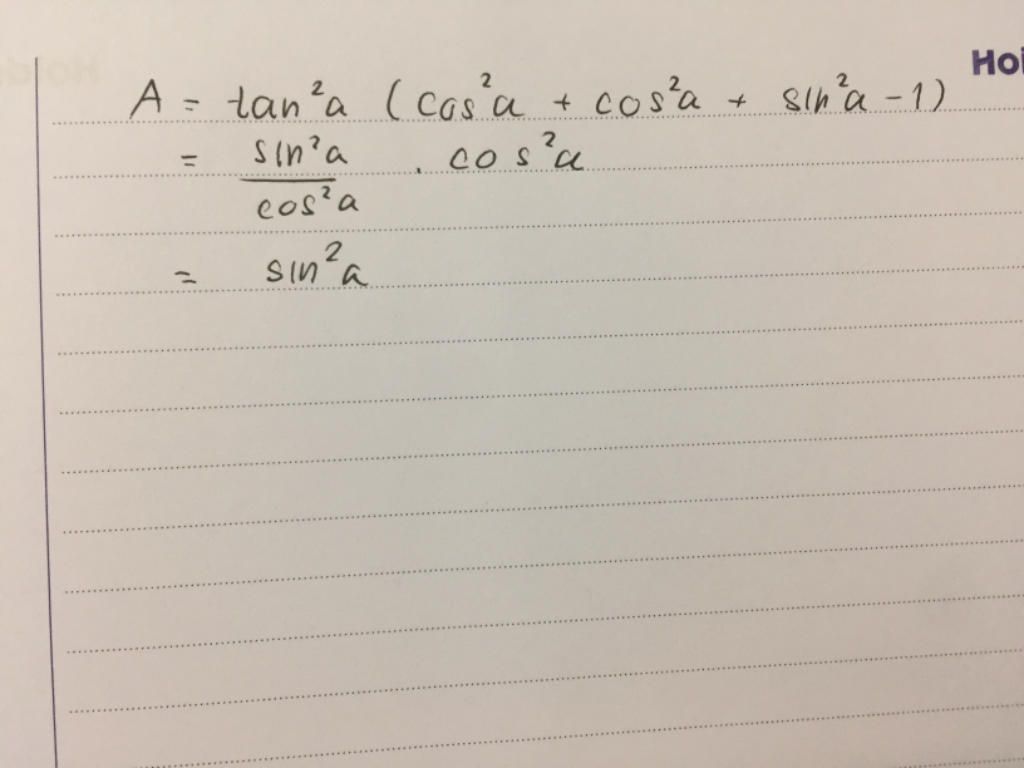 Hoi
A = tan²a (cos²a + cos²a + sin²a - 1)
= sin²a / cos²a . cos²a
= sin²a